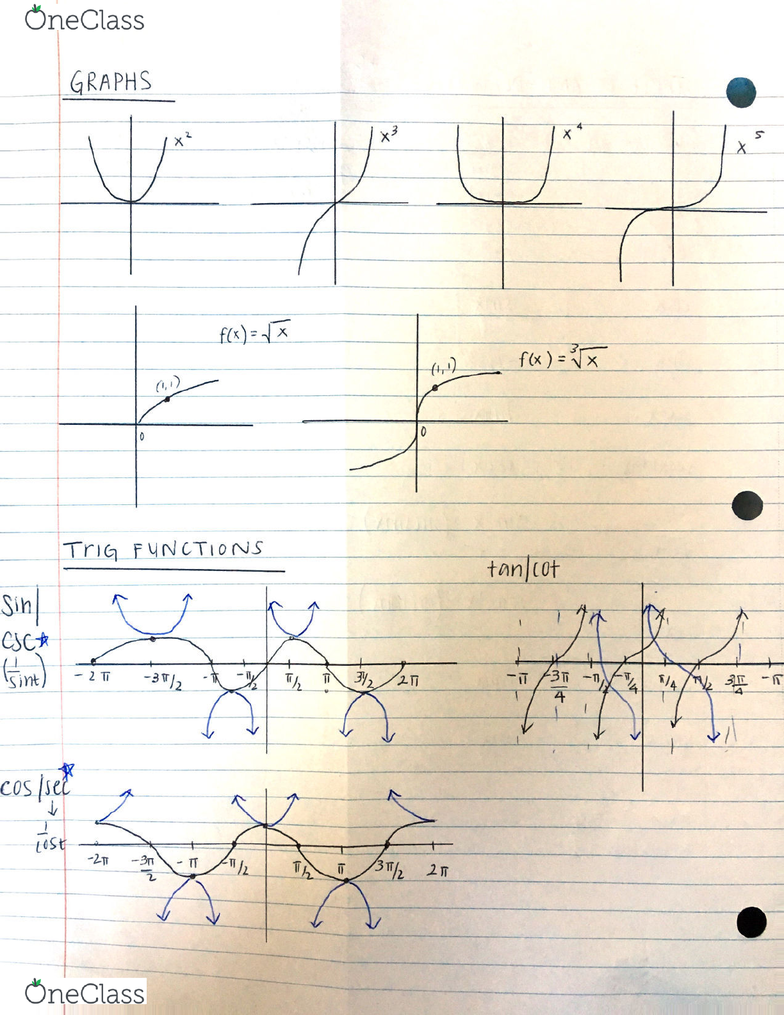 OneClass
GRAPHS
x² x³ x⁴ x⁵
f(x)=√x
(1,1)
0
f(x) = ³√x
(1,1)
0
TRIG FUNCTIONS
tan/cot
Sin/
CSC
(1/sint)
-2π -3π/2 -π -π/2 π/2 π 3π/2 2π
-π -3π/4 -π/2 -π/4 π/4 π/2 3π/4 -π
cos/sec
↓
1/cost
-2π -3π/2 -π -π/2 π/2 π 3π/2 2π
OneClass